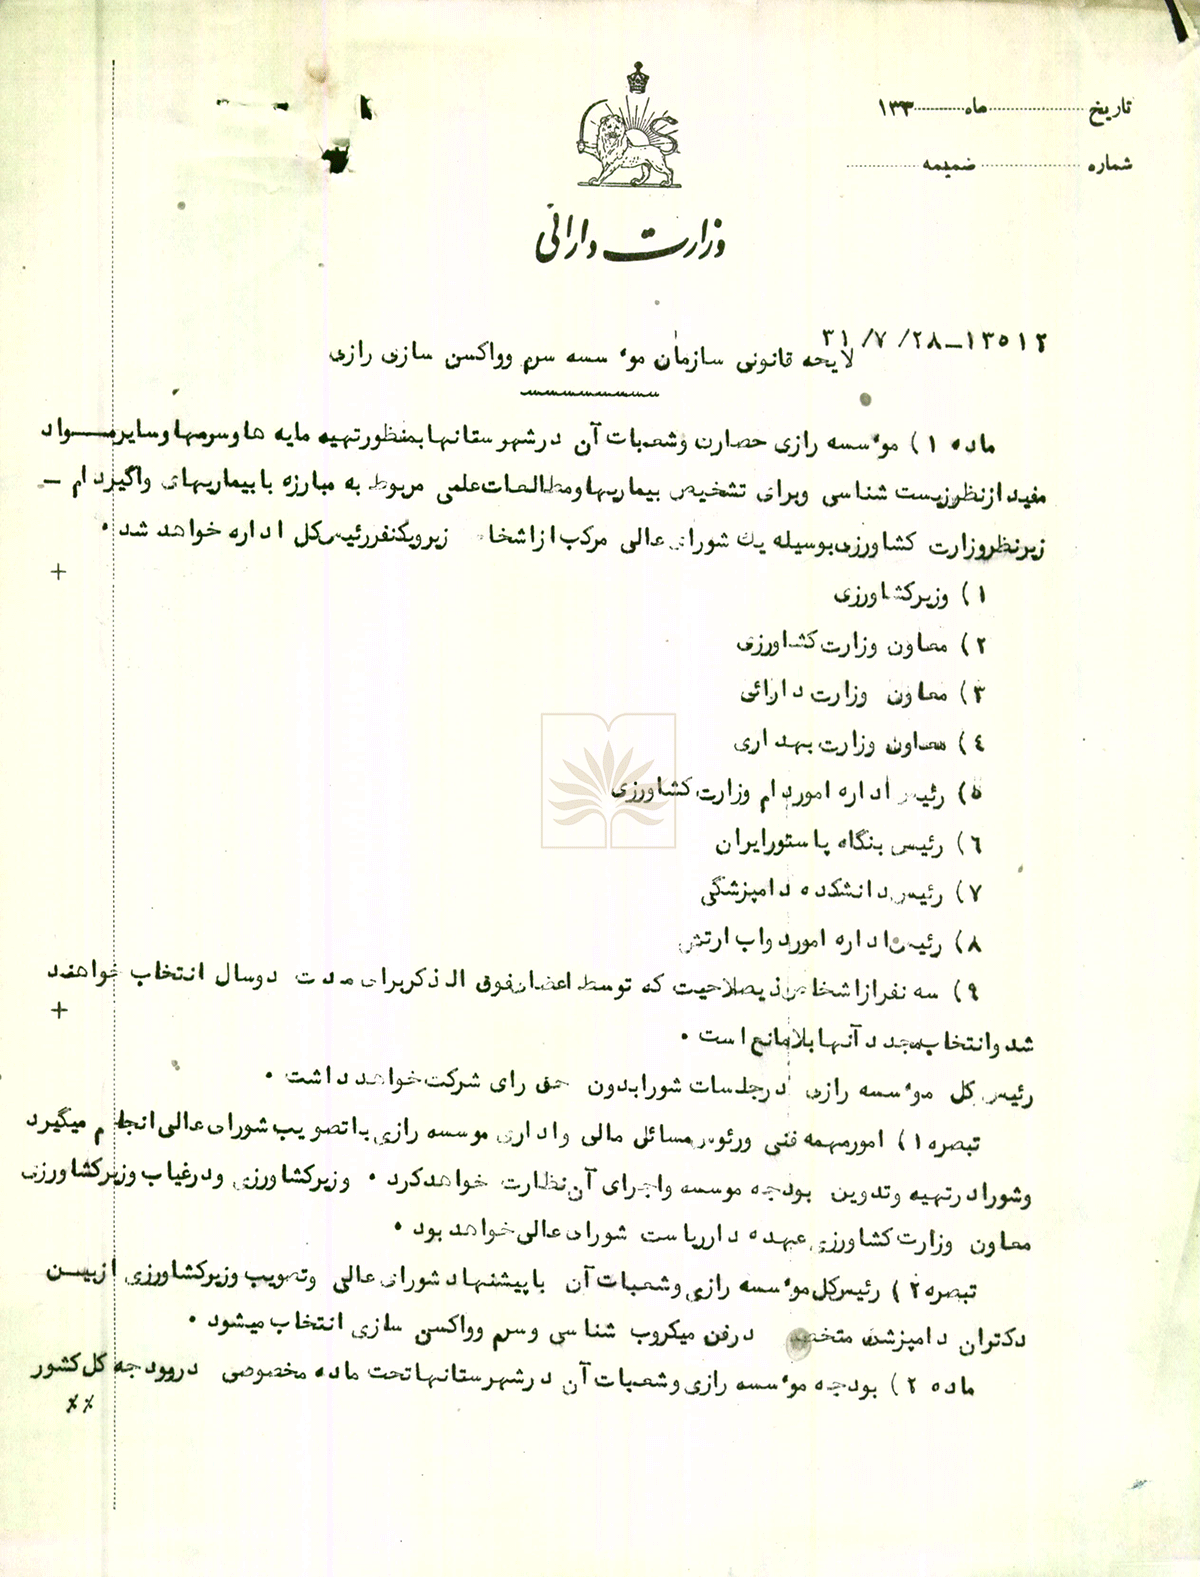 تاریخ ................ ماه .......... ۱۳۳
شماره ................ ضمیمه ............
وزارت دارائی
۱۳۵۱۲–۳۱/۷/۲۸
لایحه قانونی سازمان موٴسسه سرم وواکسن سازی رازی
ماده ۱) موٴسسه رازی حصارت وشعبات آن درشهرستانها بمنظورتهیه مایه هاوسرمها وسایرمواد
مفید ازنظرزیست شناسی وبرای تشخیص بیماریها ومطالعات علمی مربوط به مبارزه با بیماریهای واگیردام –
زیرنظروزارت کشاورزی بوسیله یک شورای عالی مرکب ازاشخاص زیرویکنفررئیس کل اداره خواهد شد ۰
۱) وزیرکشاورزی
۲) معاون وزارت کشاورزی
۳) معاون وزارت دارائی
۴) معاون وزارت بهداری
۵) رئیس اداره اموردام وزارت کشاورزی
۶) رئیس بنگاه پاستورایران
۷) رئیس دانشکده دامپزشگی
۸) رئیس اداره امورد واب ارتش
۹) سه نفرازاشخاص ذیصلاحیت که توسط اعضای فوق الذکربرای مدت دوسال انتخاب خواهند
شد وانتخاب مجدد آنها بلامانع است ۰
رئیس کل موٴسسه رازی درجلسات شورا بدون حق رای شرکت خواهد داشت ۰
تبصره ۱) امورمهمه فنی ورئوس مسائل مالی واداری موسسه رازی با تصویب شورای عالی انجام میگیرد
وشورا درتهیه وتدوین بودجه موسسه واجرای آن نظارت خواهد کرد ۰ وزیرکشاورزی ودرغیاب وزیرکشاورزی
معاون وزارت کشاورزی عهده دارریاست شورای عالی خواهد بود ۰
تبصره ۲) رئیس کل موٴسسه رازی وشعبات آن با پیشنهاد شورای عالی وتصویب وزیرکشاورزی ازبین
دکتران دامپزشک متخصص درفن میکروب شناسی وسرم وواکسن سازی انتخاب میشود ۰
ماده ۲) بودجه موٴسسه رازی وشعبات آن درشهرستانها تحت ماده مخصوصی دربودجه کل کشور